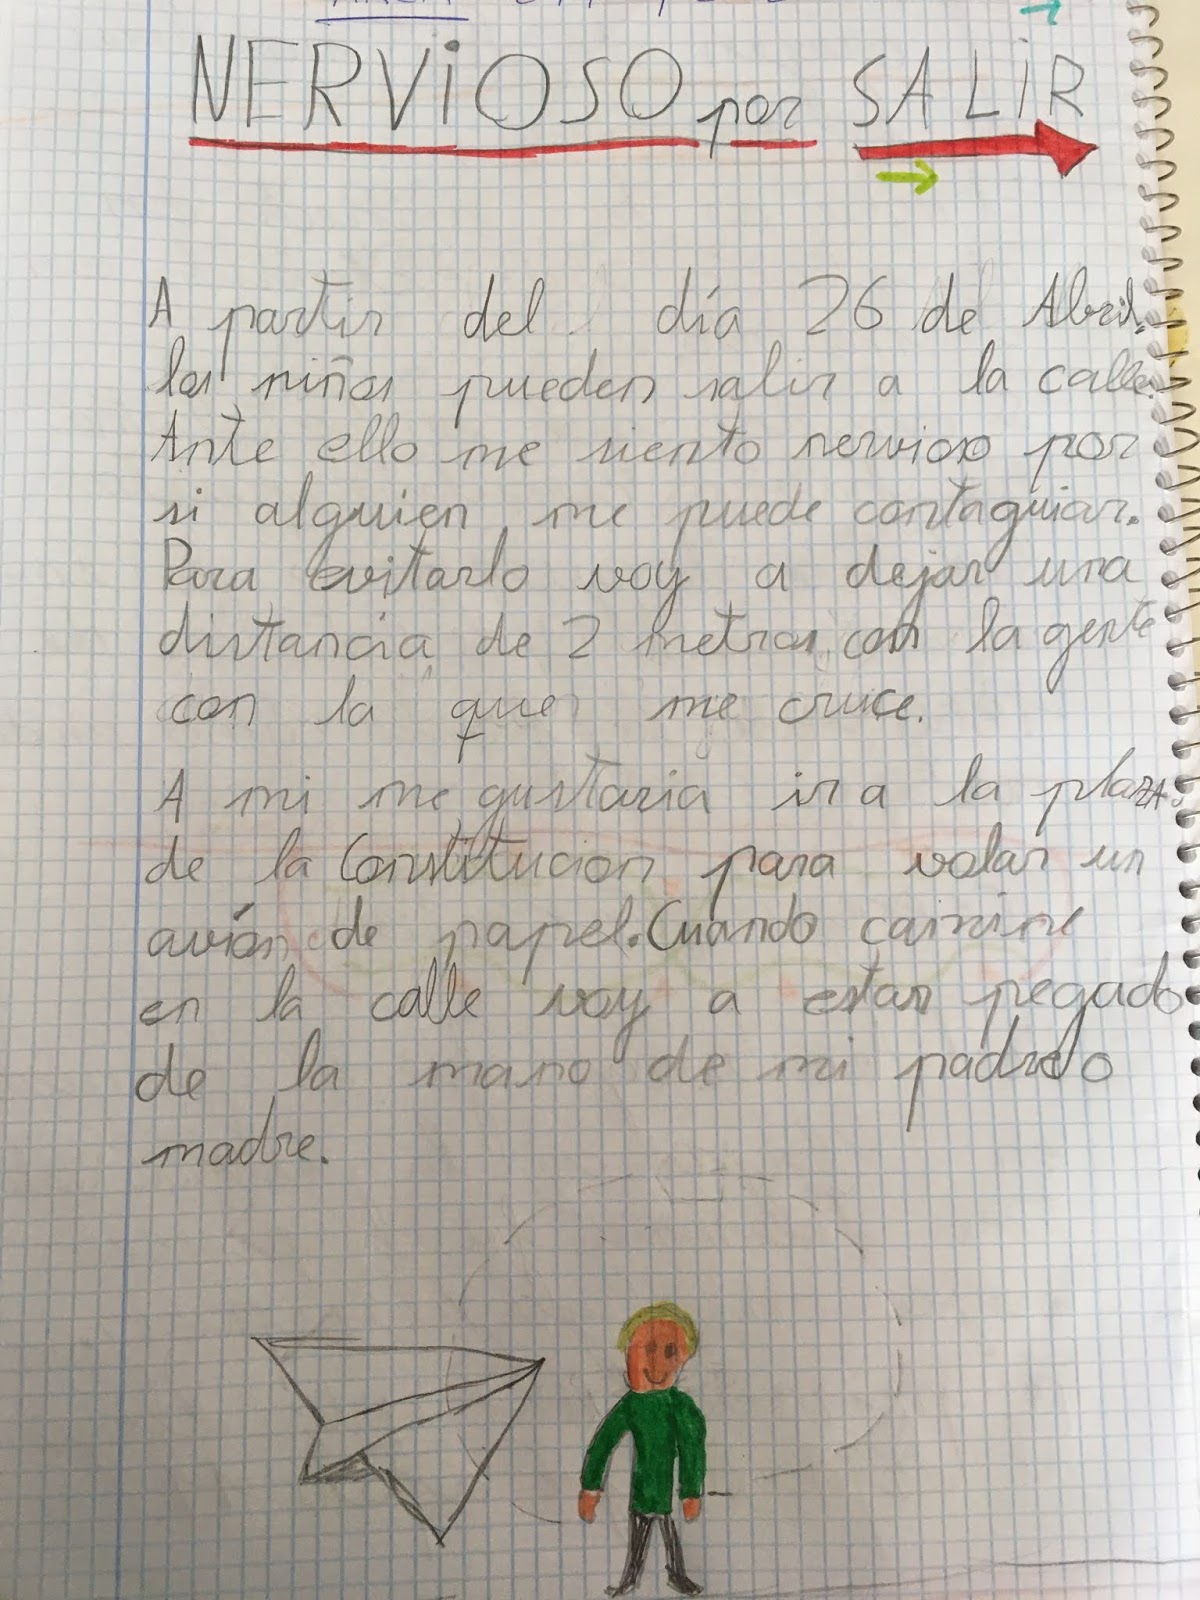 NERVIOSO por SALIR
A partir del día 26 de Abril,
los niños pueden salir a la calle.
Ante ello me siento nervioso por
si alguien me puede contaguiar.
Para evitarlo voy a dejar una
distancia de 2 metros con la gente
con la que me cruce.
A mi me gustaria ir a la plaza
de la Constitucion para volar un
avión de papel. Cuando camine
en la calle voy a estar pegado
de la mano de mi padre o
madre.